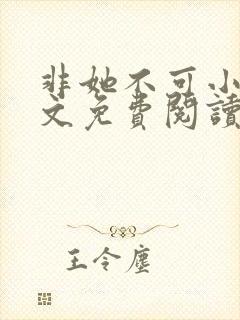 非她不可小
文免費閱讀
王令塵